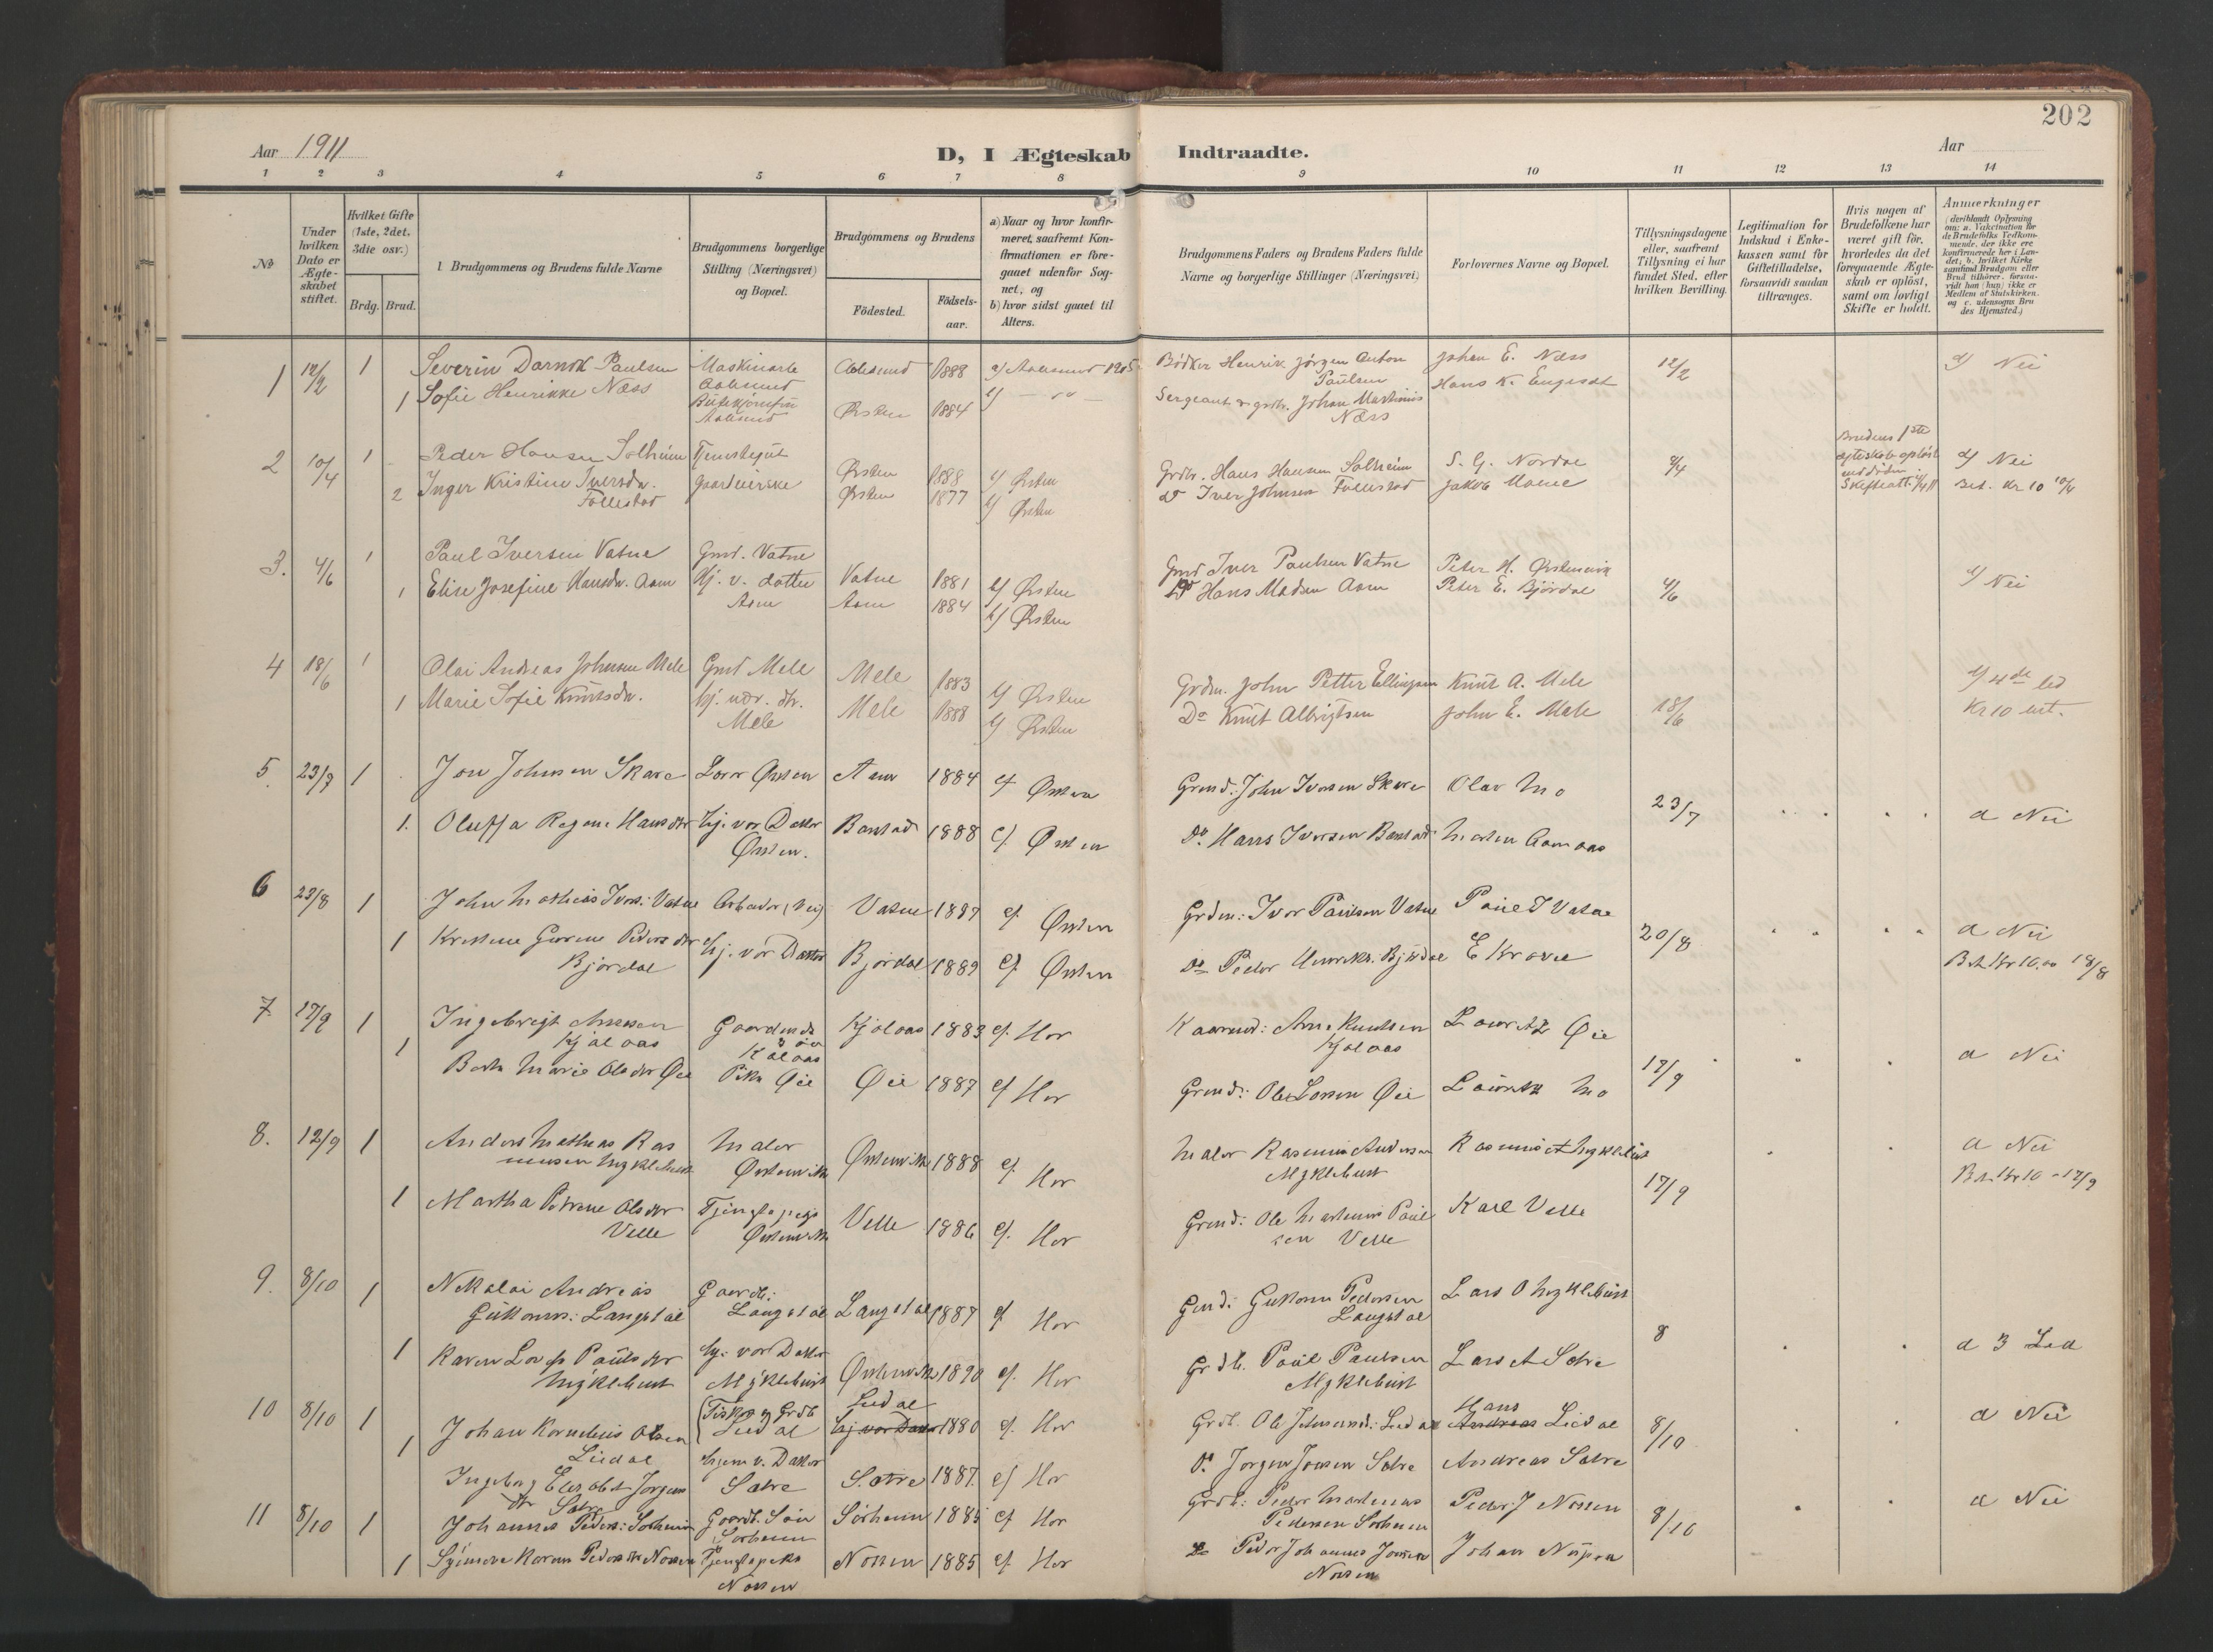 202
Aar 1911
D, I Ægteskab Indtraadte.
Aar
1 2 3 4 5 6 7 8 9 10 11 12 13 14
No
Under hvilken Dato er Ægteskabet stiftet.
Hvilket Gifte (1ste, 2det, 3die osv.)
Brdg. Brud.
1. Brudgommens og Brudens fulde Navne
Brudgommens borgerlige Stilling (Næringsvei) og Bopæl.
Brudgommens og Brudens
Fødested.
Fødselsaar.
a) Naar og hvor konfirmeret, saafremt Konfirmationen er foregaaet udenfor Sognet, og
b) hvor sidst gaaet til Alters.
Brudgommens Faders og Brudens Faders fulde Navne og borgerlige Stillinger (Næringsvei)
Forlovernes Navne og Bopæl.
Tillysningsdagene eller, saafremt Tillysning ei har fundet Sted, efter hvilken Bevilling.
Legitimation for Indskud i Enkekassen samt for Giftetilladelse, forsaavidt saadan tiltrænges.
Hvis nogen af Brudefolkene har været gift før, hvorledes da det foregaaende Ægteskab er opløst, samt om lovligt Skifte er holdt.
Anmerkninger
(deriblandt Oplysning om: a. Vaksination for de Brudefolks Vedkommende, der ikke ere konfirmerede her i Landet; b. hvilket Kirkesamfund Brudgom eller Brud tilhører, forsaavidt han (hun) ikke er Medlem af Statskirken, og c. udensogns Brudes Hjemsted.)
1 12/2 1 Severin Paulsen Aalesund 1888 a) Aalesund 1905 Bødker Henrik Jørgen Anton Paulsen Johan E. Næss 12/2 Nei
1 Sofie Henrikke Næss Aalesund Ørsten 1884 Sergeant Johan Martinus Næss Hans K. Engeset
2 10/4 1 Peder Hansen Solheim Tjenestegut Ørsten 1888 Ørsten Grdbr. Hans Hansen Solheim S. G. Nordal 9/4 Brudens 1ste Nei
2 Inger Kristine Iversdr. Follestad Ørsten 1877 Ørsten Do Iver Johnsen Follestad Jakob Bet. Kr 10 10/4
3. 4/6 1 Paul Iversen Vatne Gmd. Vatne Vatne 1881 Ørsten Gmd Iver Paulsen Vatne Peter H. Ørstenvik 4/6 Nei
1 Elise Josefine Hansdr. Aam Hj. v. datter Aam Aam 1884 Ørsten Do Hans Madsen Aam Peter E. Bjørdal
4 18/6 1 Olai Andreas Johnsen Mele Gmd Mele Mele 1883 Ørsten Grdm. John Petter Ellingsen Knut A. Mele 18/6 4de led
1 Marie Sofie Knutsdr. hj. vær. dtr. Mele Mele 1888 Ørsten Do Knut Albrigtsen John E. Mele Kr 10 bet.
5. 23/7 1 Jon Johnsen Skare Ørsten Aam 1884 Ørsten Grmd: John Iversen Skare Olav Mo 23/7 a Nei
1. Oluffa Regine Hansdtr hj. vær Datter Ørsten. Barstad 1888 Ørsten Do Hans Iversen Barstad Marten Aamaas
6 23/8 1 John Mathias Ivers: Vatne Arbeider Vatne Ørsten Grdm: Iver Paulsen Vatne Paul I Vatne 20/8 a Nei
1 Pedersdtr Bjørdal hj. vær Datter Bjørdal 1889 Ørsten Do Peder Henriks. Bjørdal Bet. Kr 10.00 18/8
7. 17/9 1 Ingebrigt Arnesen Kjølaas Kjølaas 1883 Her Kaarmd: Arne Knutsen Kjølaas Lauritz Øie 17/9 a Nei
1 Marie Olsdtr Øie Pike Øie Øie 1887 Her Grmd: Ole Larsen Øie Lauritz Mo
8. 12/9 1 Anders Mathias Rasmussen Myklebust Maler Ørstenvik Ørstenvik 1888 Her Maler Rasmus Andersen Myklebust Rasmus A Myklebust 17/9 a Nei
1 Martha Petrine Olsdtr Velle Tjenstepige Ørstenvik Velle 1886 Her Grmd: Ole Martinus Paulsen Velle Karl Velle Bet. Kr 10 - 17/9
9. 8/10 1 Nikolai Andreas Guttorms: Langstøl Langstøl Langstøl 1887 Her Guttorm Pedersen Langstøl Lars O Myklebust 8 a 3 Led
1 Karen Paulsdtr Myklebust hj: vær Datter Myklebust Ørstenvik 1890 Her Grdb. Paul Paulsen Myklebust Lars A Sætre
10 8/10 1 Johan Kornelius Olsen Liadal Fisker og Grdb Liadal Liadal 1880 Her Grdb. Ole Johannes: Liadal Hans Liadal 8/10 a Nei
1 Ingeborg Elisabet Jørgensdtr Sætre hjem v. Datter Sætre Sætre 1887 Her Do Jørgen Jonsen Sætre Andreas Sætre
11 8/10 1 Johannes Peders: Sørheim Gaardb. Søn Sørheim Sørheim 1885 Her Grdb: Peder Martinus Pedersen Sørheim Peder J Nossen 8/10 a Nei
1 Karen Pedersdtr Nossen Nossen Nossen 1885 Her Do Peder Johannes Jonsen Nossen Johan